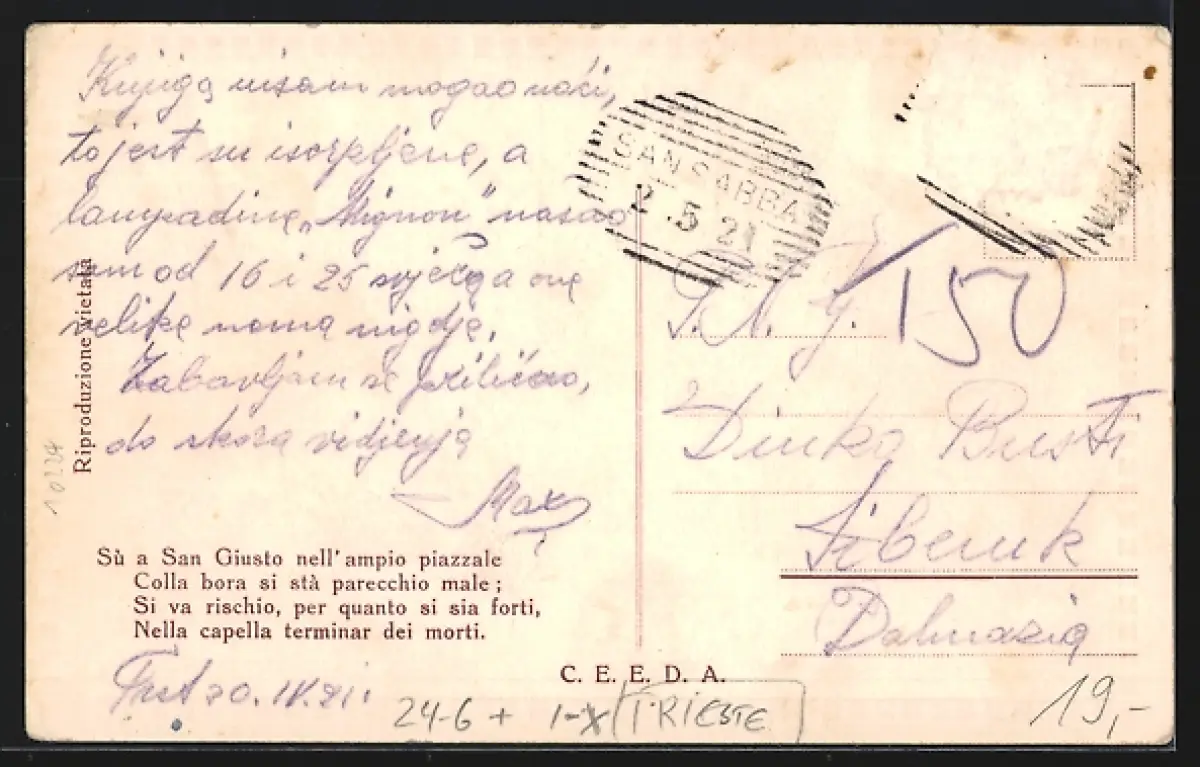 Knjiga nisam mogao naći,
to jest su iscrpljene, a
lampadine „Mignon" našao
sam od 16 i 25 svjeća a ove
velike nema nigdje.
Zabavljam se prilično,
do skora vidjenja
Max
Riproduzione vietata
10224
Sù a San Giusto nell'ampio piazzale
Colla bora si stà parecchio male;
Si va rischio, per quanto si sia forti,
Nella capella terminar dei morti.
20. IV. 21.
C. E. E. D. A.
24-6 + 1-X TRIESTE
SAN SABBA
2 .5 21
T50
Dinko
Šibenik
Dalmazia
19,-